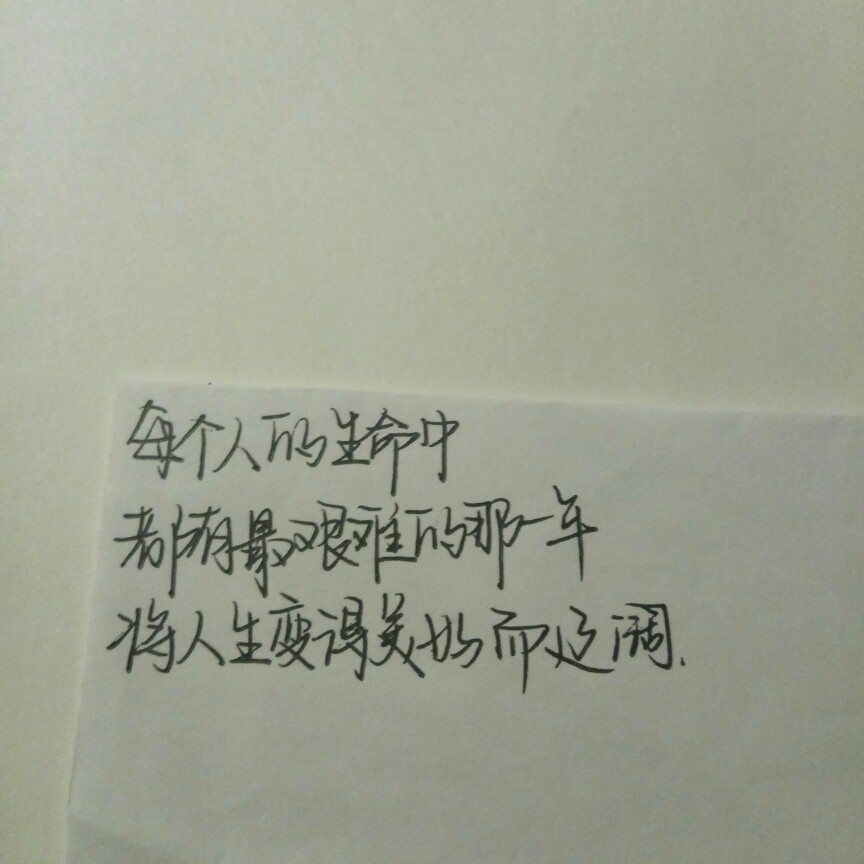 每个人的生命中
都有最艰难的那一年
将人生变得美好而辽阔.